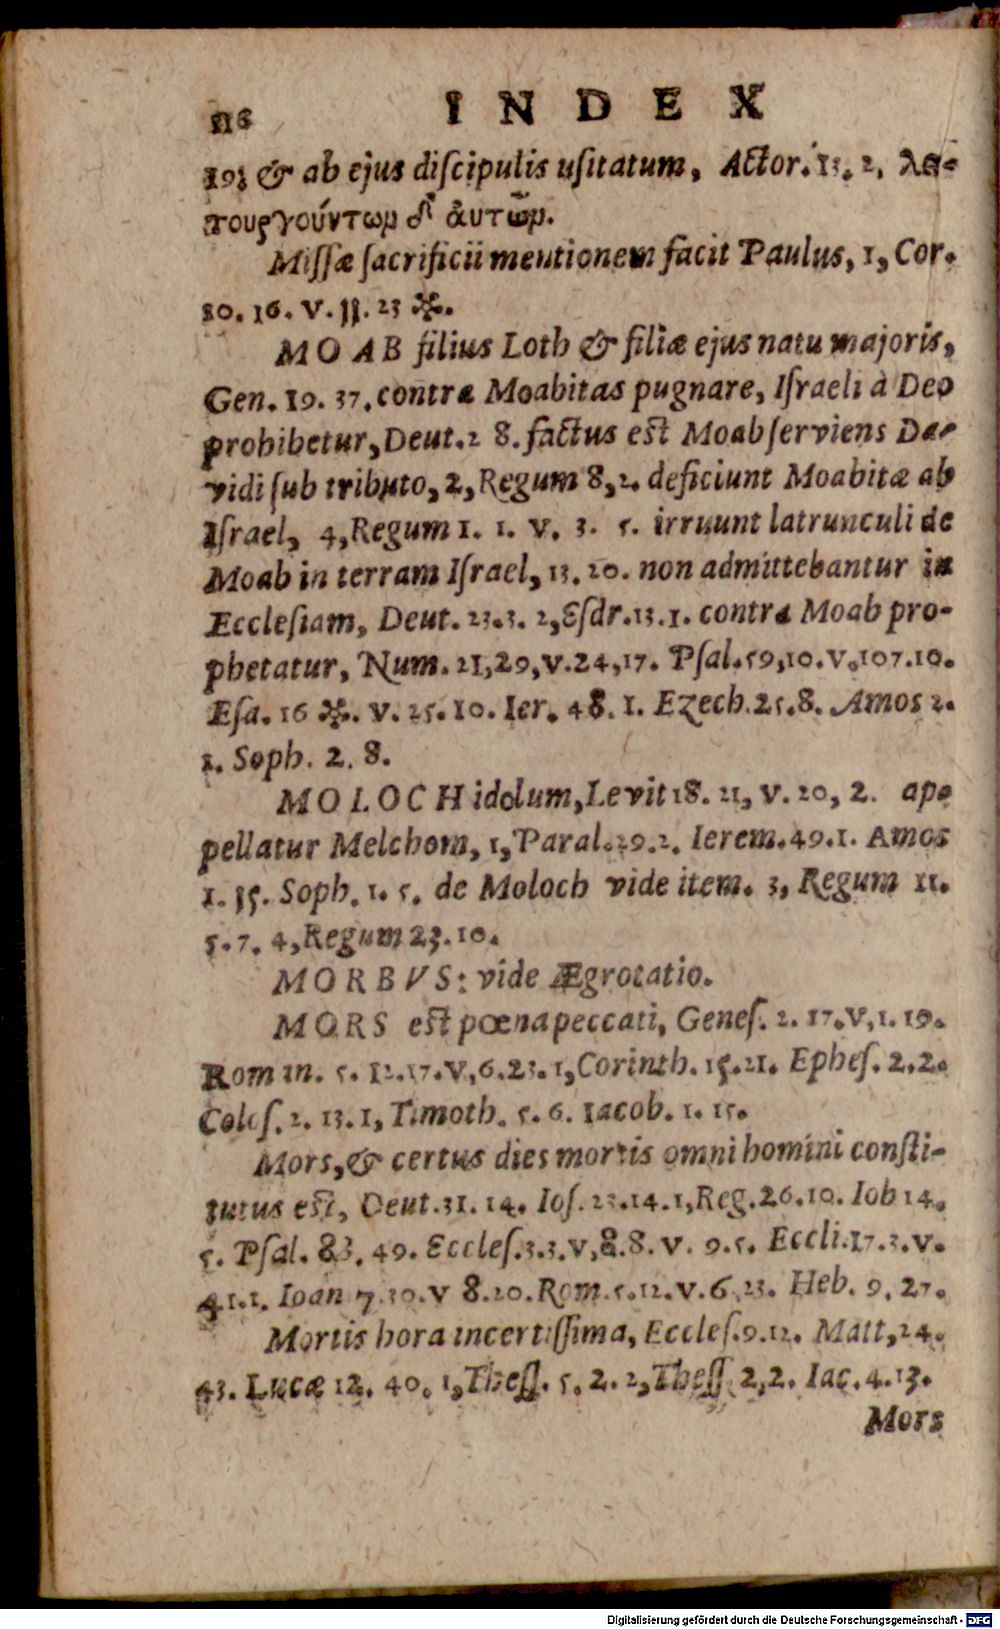 116 INDEX
19; & ab ejus diſcipulis uſitatum, Actor. 13. 2, λει-
τουργούντωμ δ' ἀυτῶμ.
Miſſæ ſacrificii mentionem facit Paulus, 1, Cor.
10. 16. v. 11. 23 ✻.
MOAB filius Loth & filiæ ejus natu majoris,
Gen. 19. 37. contra Moabitas pugnare, Iſraeli à Deo
prohibetur, Deut. 2 8. factus eſt Moab ſerviens Da-
vidi ſub tributo, 2, Regum 8, 2. deficiunt Moabitæ ab
Iſrael, 4, Regum 1. 1. v. 3. 5. irruunt latrunculi de
Moab in terram Iſrael, 13. 20. non admittebantur in
Eccleſiam, Deut. 23. 3. 2, Eſdr. 13. 1. contra Moab pro-
phetatur, Num. 21, 29, v. 24, 17. Pſal. 59, 10. v. 107. 10.
Eſa. 16 ✻. v. 25. 10. Ier. 48. 1. Ezech. 25. 8. Amos 2.
1. Soph. 2. 8.
MOLOCH idolum, Levit 18. 21, v. 20, 2. ap-
pellatur Melchom, 1, Paral. 29. 2. Ierem. 49. 1. Amos
1. 15. Soph. 1. 5. de Moloch vide item. 3, Regum 11.
5. 7. 4, Regum 23. 10.
MORBVS: vide Ægrotatio.
MORS eſt pœna peccati, Geneſ. 2. 17. v, 1. 19.
Rom in. 5. 12. 17. v, 6. 23. 1, Corinth. 15. 21. Epheſ. 2. 2.
Coloſ. 2. 13. 1, Timoth. 5. 6. Iacob. 1. 15.
Mors, & certus dies mortis omni homini conſti-
tutus eſt, Deut. 31. 14. Ioſ. 23. 14. 1, Reg. 26. 10. Iob 14.
5. Pſal. 88. 49. Eccleſ. 3. 3. v, 8. 8. v. 9. 5. Eccli. 17. 3. v.
41. 1. Ioan 7. 30. v 8. 20. Rom. 5. 12. v. 6. 23. Heb. 9, 27.
Mortis hora incertiſſima, Eccleſ. 9. 12. Matt, 24.
43. Lucæ 12. 40. 1, Theſſ. 5. 2. 2, Theſſ 2, 2. Iac. 4. 13.
Mors
Digitalisierung gefördert durch die Deutsche Forschungsgemeinschaft - DFG